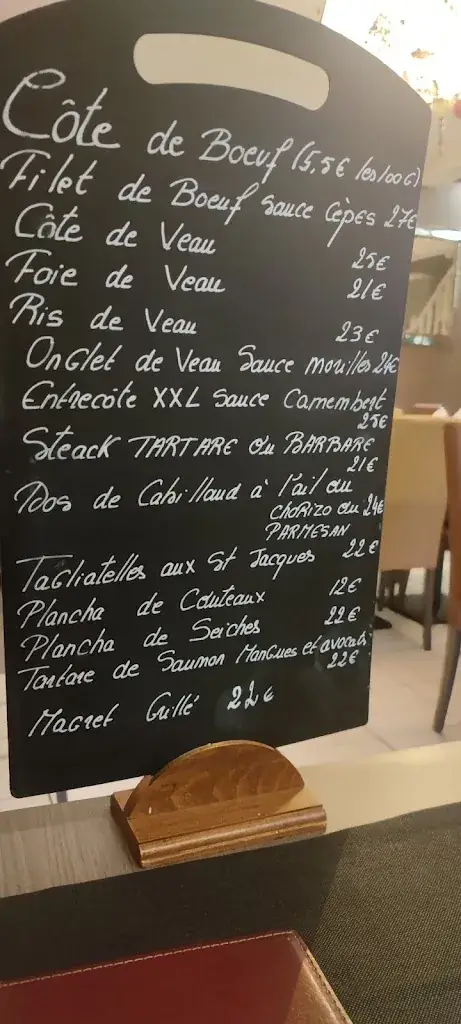 Côte de Boeuf (5,5€ les 100G)
Filet de Boeuf Sauce Cèpes 27€
Côte de Veau 25€
Foie de Veau 21€
Ris de Veau 23€
Onglet de Veau Sauce morilles 24€
Entrecôte XXL Sauce Camembert 25€
Steack TARTARE ou BARBARE 21€
Dos de Cabillaud à l'ail ou
CHORIZO ou 24€
PARMESAN
Tagliatelles aux St Jacques 22€
Plancha de Couteaux 12€
Plancha de Seiches 22€
Tartare de Saumon Mangues et avocats 22€
Magret Grillé 22€